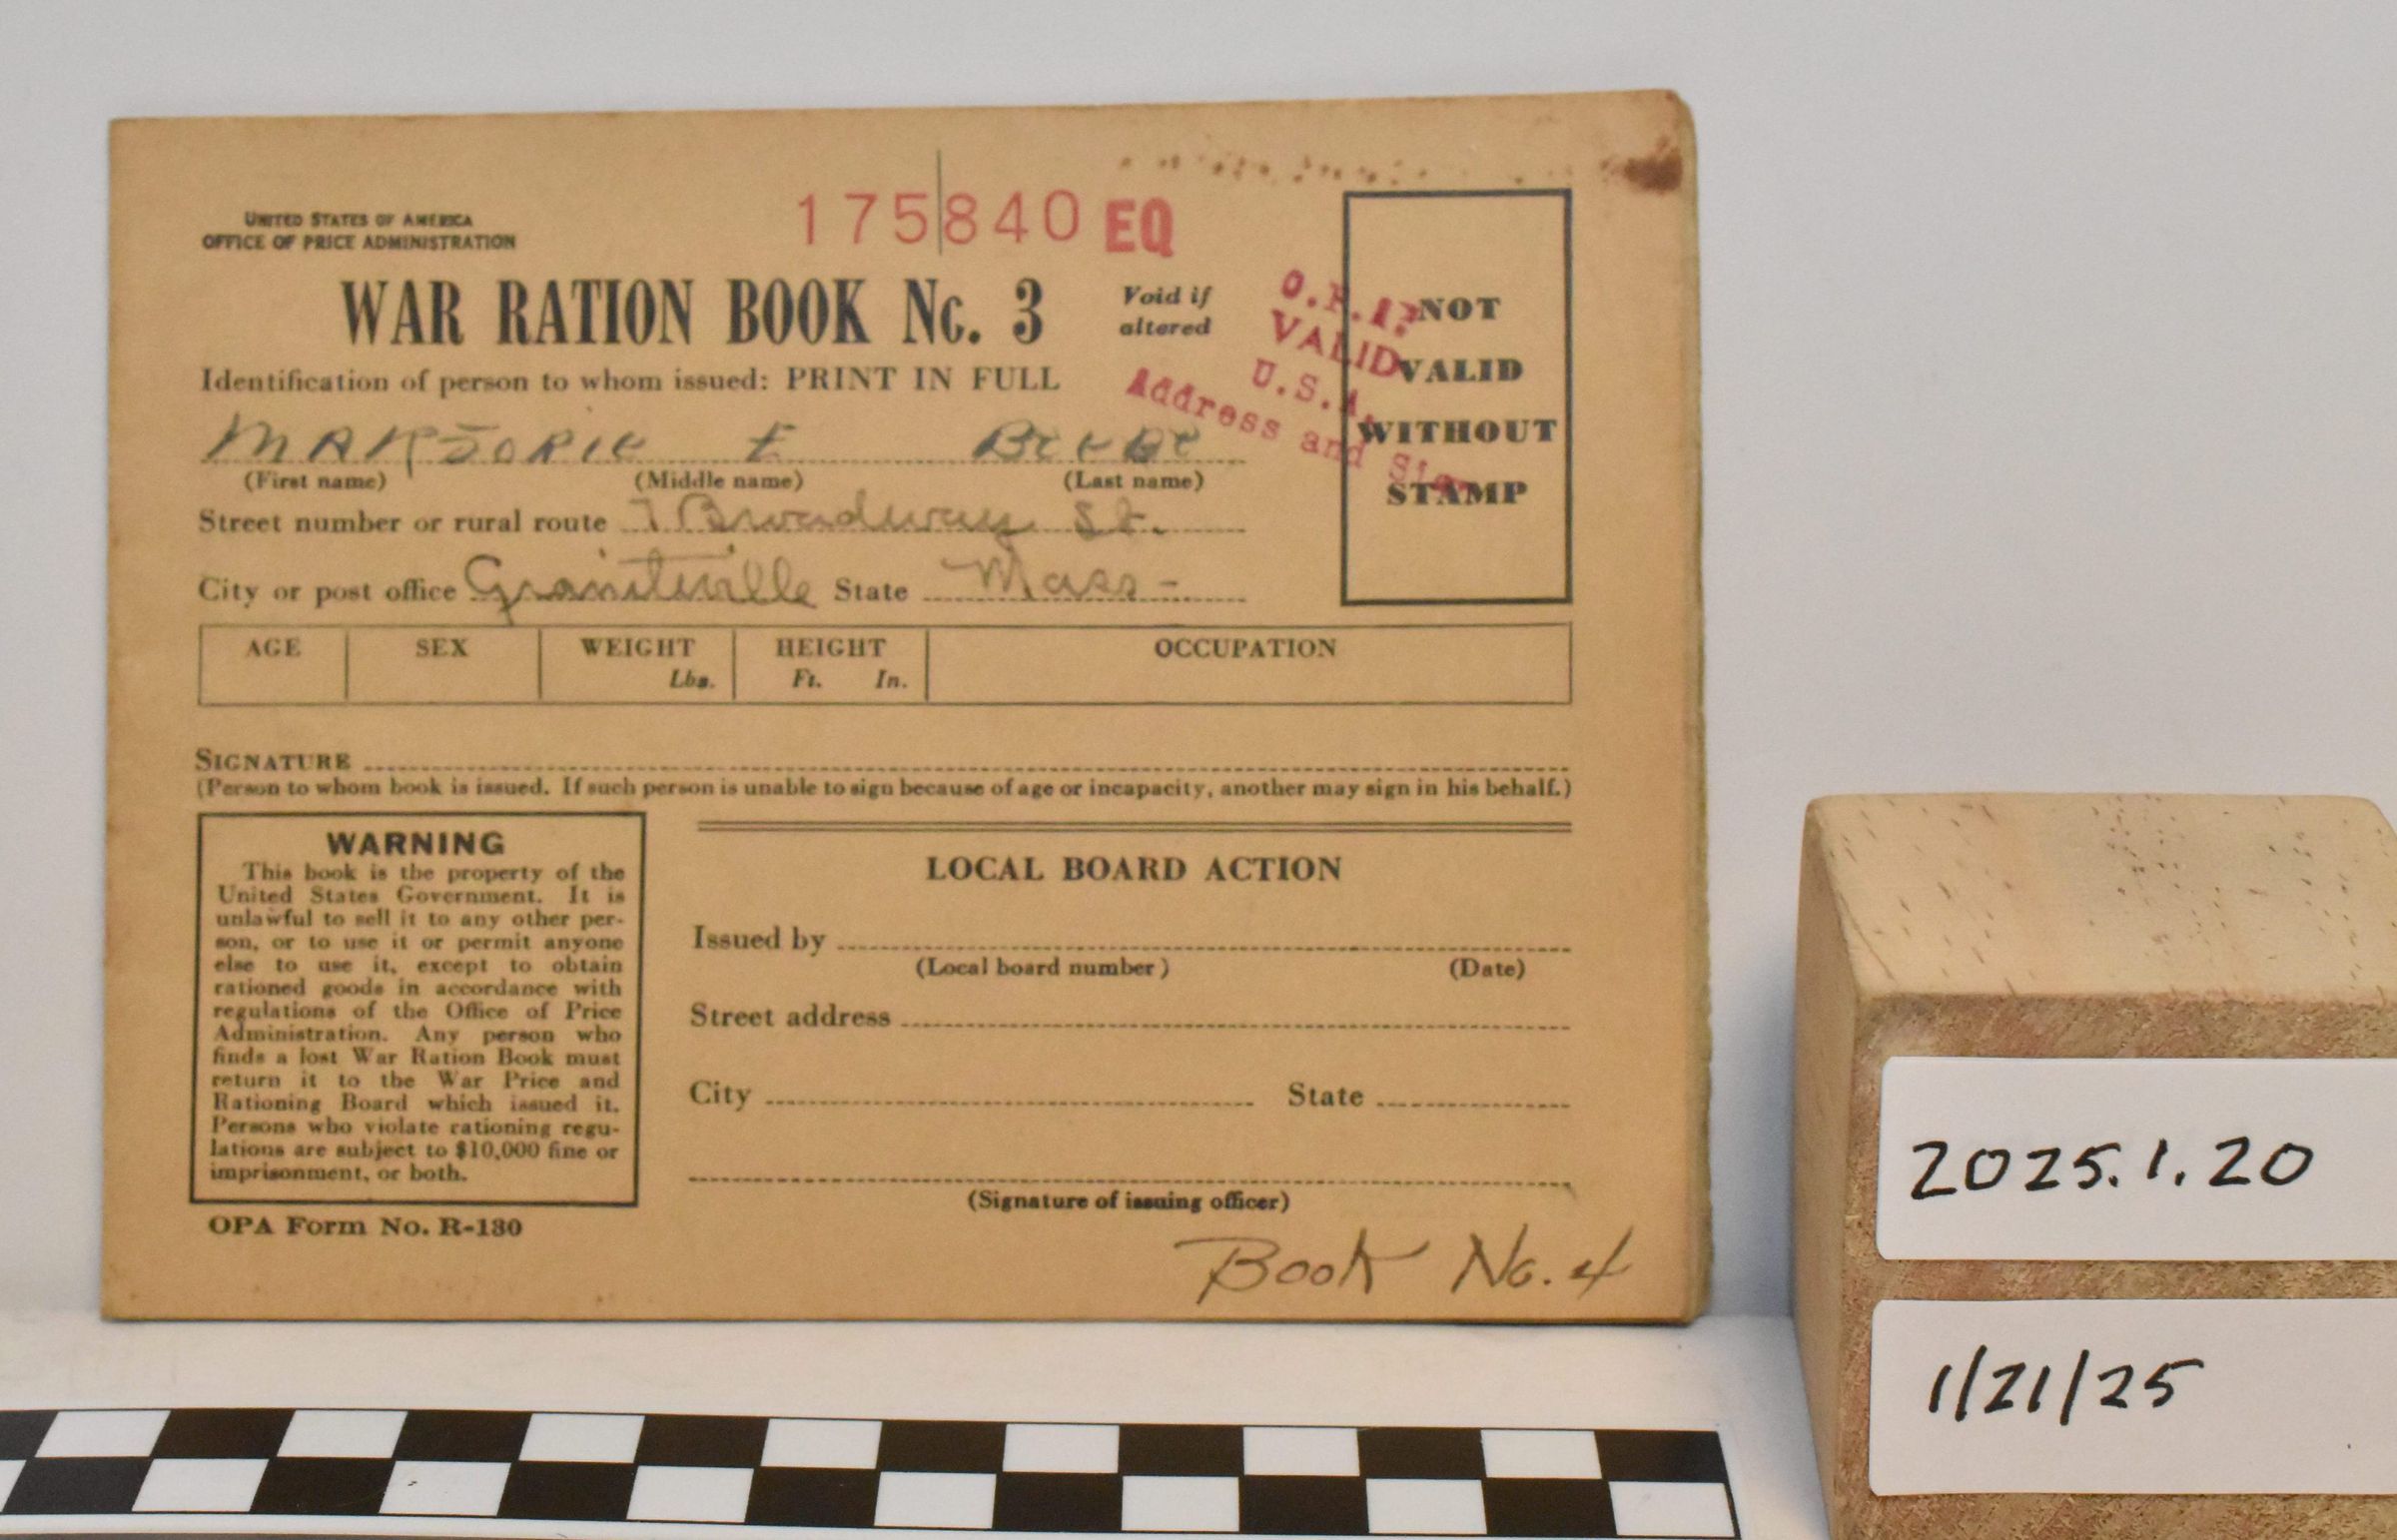 UNITED STATES OF AMERICA
OFFICE OF PRICE ADMINISTRATION
175840 EQ
WAR RATION BOOK No. 3
Void if
altered
Identification of person to whom issued: PRINT IN FULL
MARJORIE E BEEBE
(First name) (Middle name) (Last name)
Street number or rural route 7 Broadway St.
City or post office Graniteville State Mass-
O.P.A.
VALID
U.S.A.
Address and
NOT
VALID
WITHOUT
STAMP
AGE SEX WEIGHT HEIGHT OCCUPATION
Lbs. Ft. In.
SIGNATURE
(Person to whom book is issued. If such person is unable to sign because of age or incapacity, another may sign in his behalf.)
WARNING
This book is the property of the
United States Government. It is
unlawful to sell it to any other per-
son, or to use it or permit anyone
else to use it, except to obtain
rationed goods in accordance with
regulations of the Office of Price
Administration. Any person who
finds a lost War Ration Book must
return it to the War Price and
Rationing Board which issued it.
Persons who violate rationing regu-
lations are subject to $10,000 fine or
imprisonment, or both.
OPA Form No. R-130
LOCAL BOARD ACTION
Issued by
(Local board number) (Date)
Street address
City State
(Signature of issuing officer)
Book No. 4
2025.1.20
1/21/25